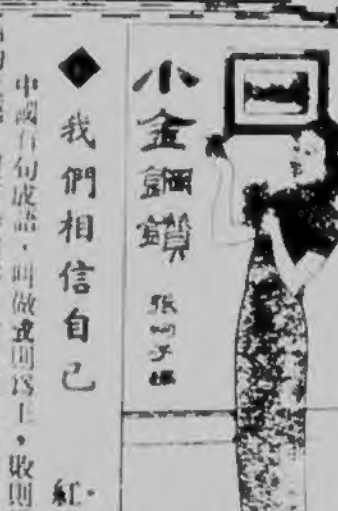 小金鋼鑽
張
◆我們相信自己 紅·
中國有句成語,叫做成則爲王,敗則